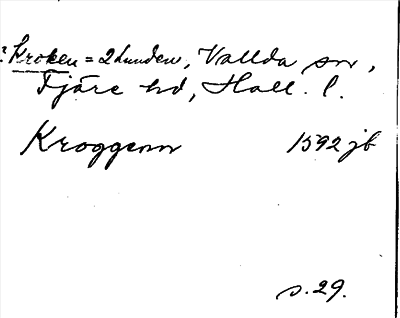 ? Kroken = 2 Lunden, Vallda sn,
Fjäre hd, Hall. l.
Kroggenn 1592 jb
s. 29.